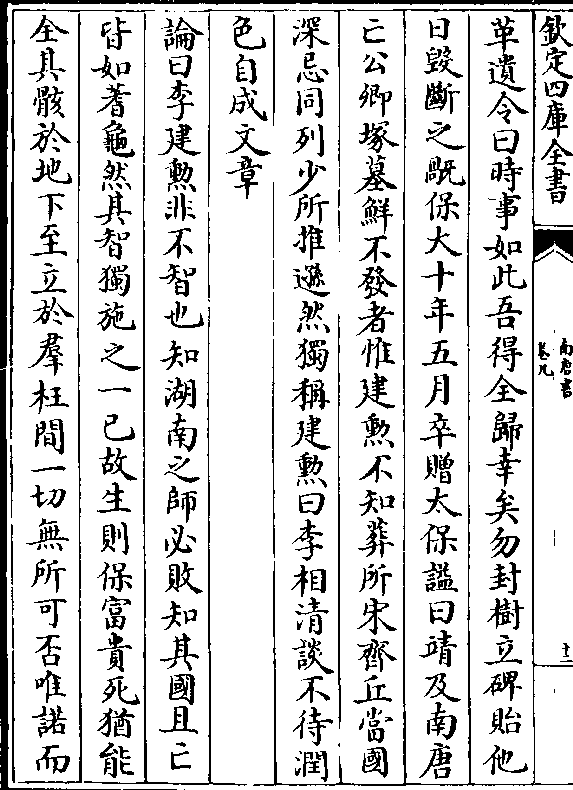 欽定四庫全書
南唐書
卷九
十二
革遺令曰時事如此吾得全歸幸矣勿封樹立碑貽他
日毀斷之䫤保大十年五月卒贈太保諡曰靖及南唐
亡公卿塚墓鮮不發者惟建勲不知葬所宋齊丘當國
深忌同列少所推遜然獨稱建勲曰李相清談不待潤
色自成文章
論曰李建勲非不智也知湖南之師必敗知其國且亡
皆如蓍龜然其智獨施之一已故生則保富貴死猶能
全其骸於地下至立於羣枉間一切無所可否唯諾而